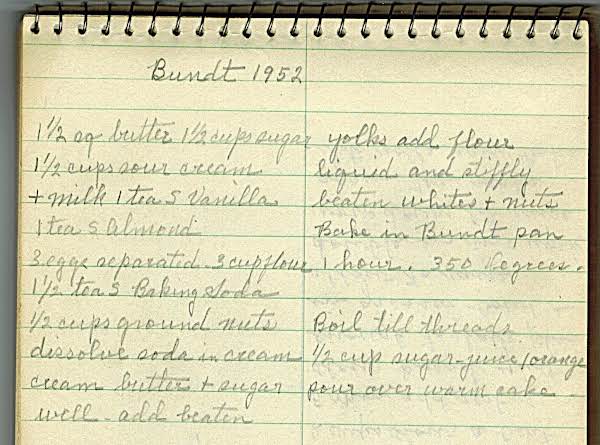 Bundt 1952
1 1/2 sq butter 1 1/2 cups sugar
1 1/2 cups sour cream
+ milk 1 tea S Vanilla
1 tea S Almond
3 eggs separated - 3 cup flour
1 1/2 tea S Baking Soda
1/2 cups ground nuts
dissolve soda in cream
cream butter + sugar
well - add beaten
yolks add flour
liquid and stiffly
beaten whites + nuts
Bake in Bundt pan
1 hour. 350 degrees.
Boil till threads
1/2 cup sugar - juice 1 orange
pour over warm cake -